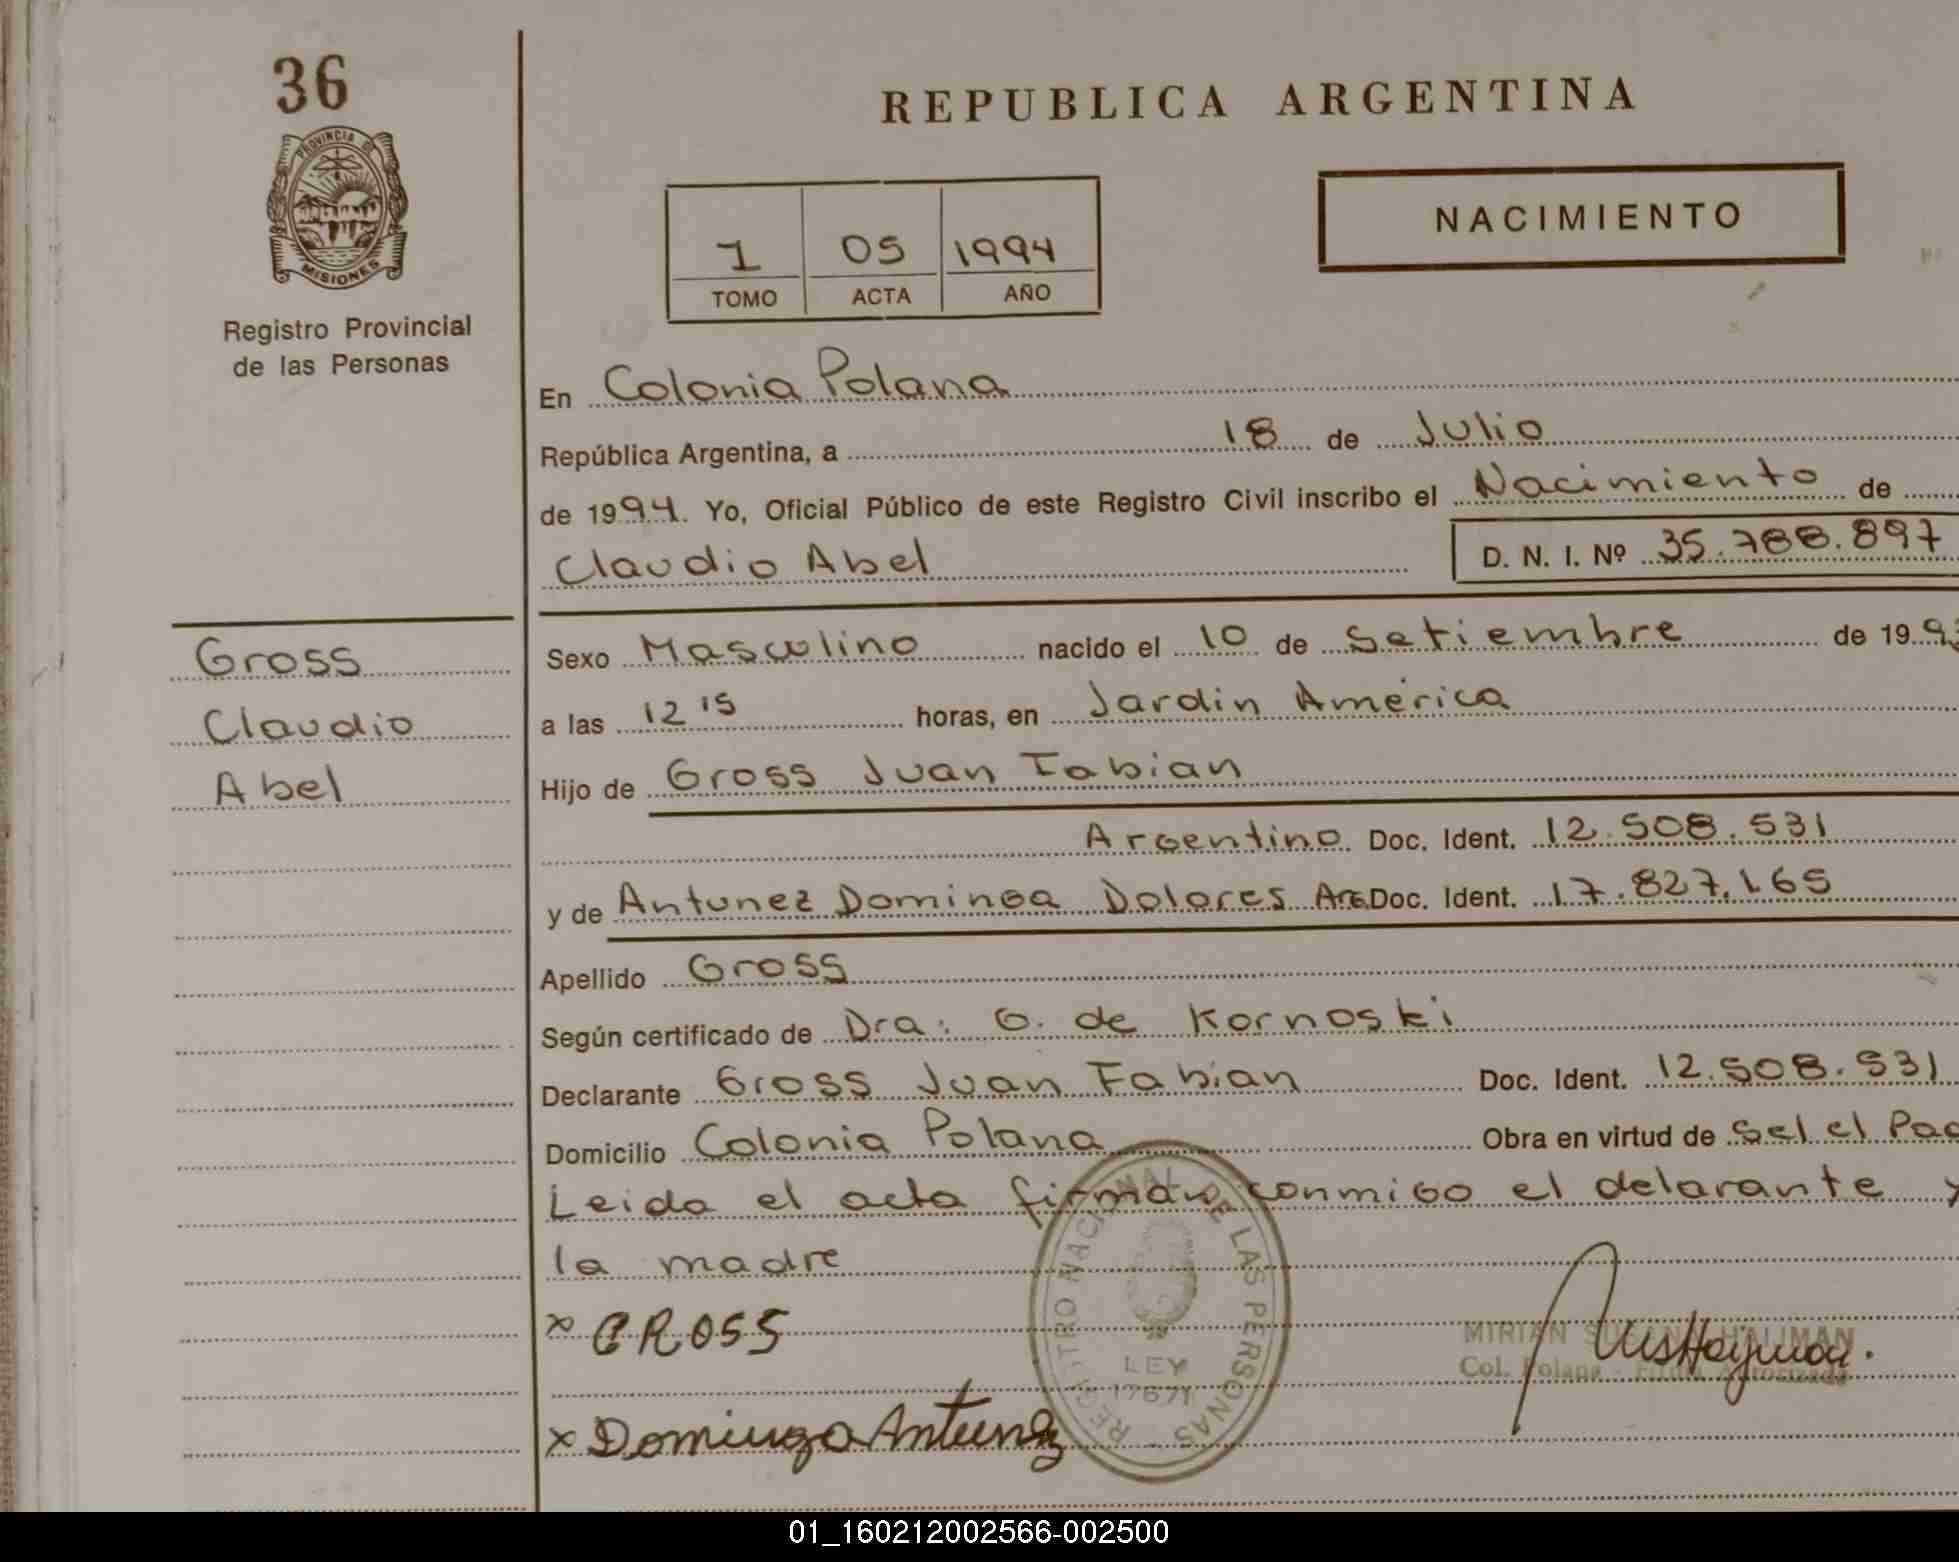 36
PROVINCIA DE
MISIONES
Registro Provincial
de las Personas
REPUBLICA ARGENTINA
NACIMIENTO
1 05 1994
TOMO ACTA AÑO
En Colonia Polana
República Argentina, a 18 de Julio
de 1994. Yo, Oficial Público de este Registro Civil inscribo el Nacimiento de
Claudio Abel D. N. I. Nº 35.788.897
Gross
Claudio
Abel
Sexo Masculino nacido el 10 de Setiembre de 19 93
a las 12 15 horas, en Jardin América
Hijo de Gross Juan Fabian
Argentino Doc. Ident. 12.508.531
y de Antunez Dominga Dolores Arg. Doc. Ident. 17.827.165
Apellido Gross
Según certificado de Dra: G. de Kornoski
Declarante Gross Juan Fabian Doc. Ident. 12.508.531
Domicilio Colonia Polana Obra en virtud de Sel el Pad
Leida el acta firman conmigo el delarante y
la madre
x GROSS
x Dominga Antunez
REGISTRO NACIONAL DE LAS PERSONAS
LEY
17671
MIRIAN SUSANA
Col. Polana - Firma Autorizada
01_160212002566-002500